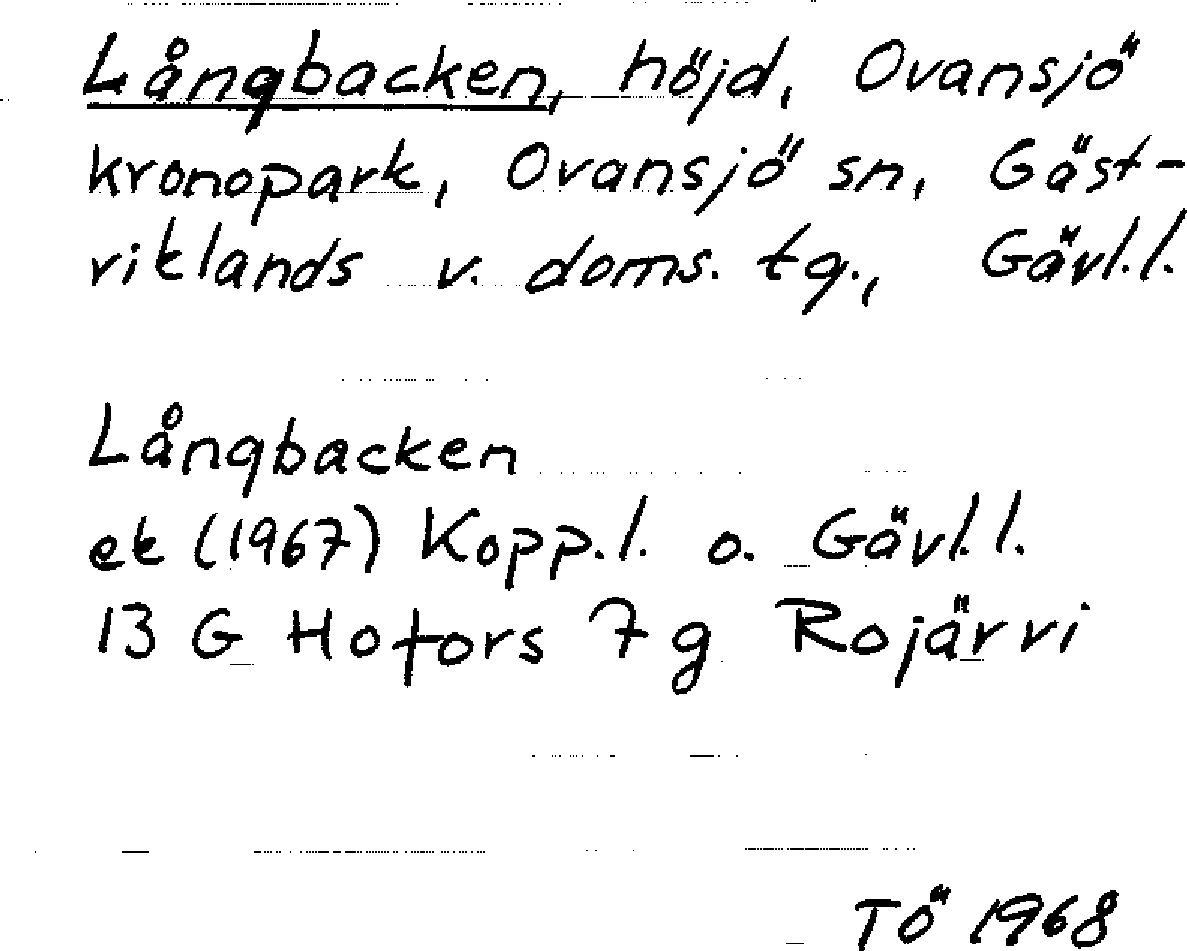 Långbacken, höjd, Ovansjö
kronopark, Ovansjö sn, Gäst-
riklands v. doms. tg., Gävl.l.
Långbacken
ek (1967) Kopp.l. o. Gävl.l.
13 G Hofors 7 g Rojärvi
TÖ 1968